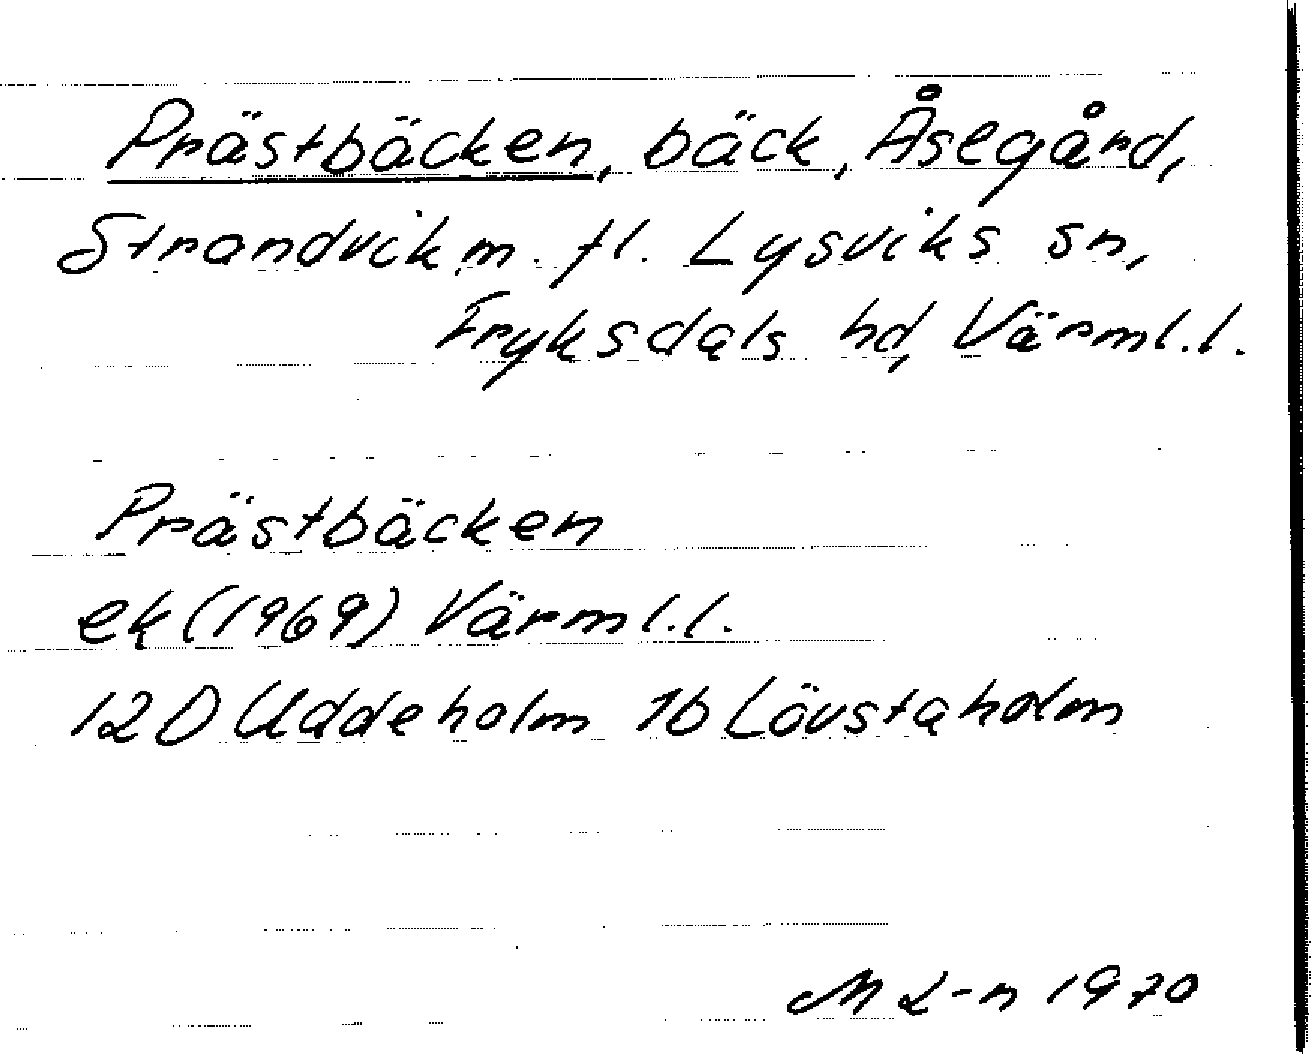 Prästbäcken, bäck, Åsegård,
Strandvik m. fl. Lysviks sn,
Fryksdals hd, Värml. l.
Prästbäcken
ek (1969) Värml. l.
12D Uddeholm 1b Lövstaholm
M L-n 1970